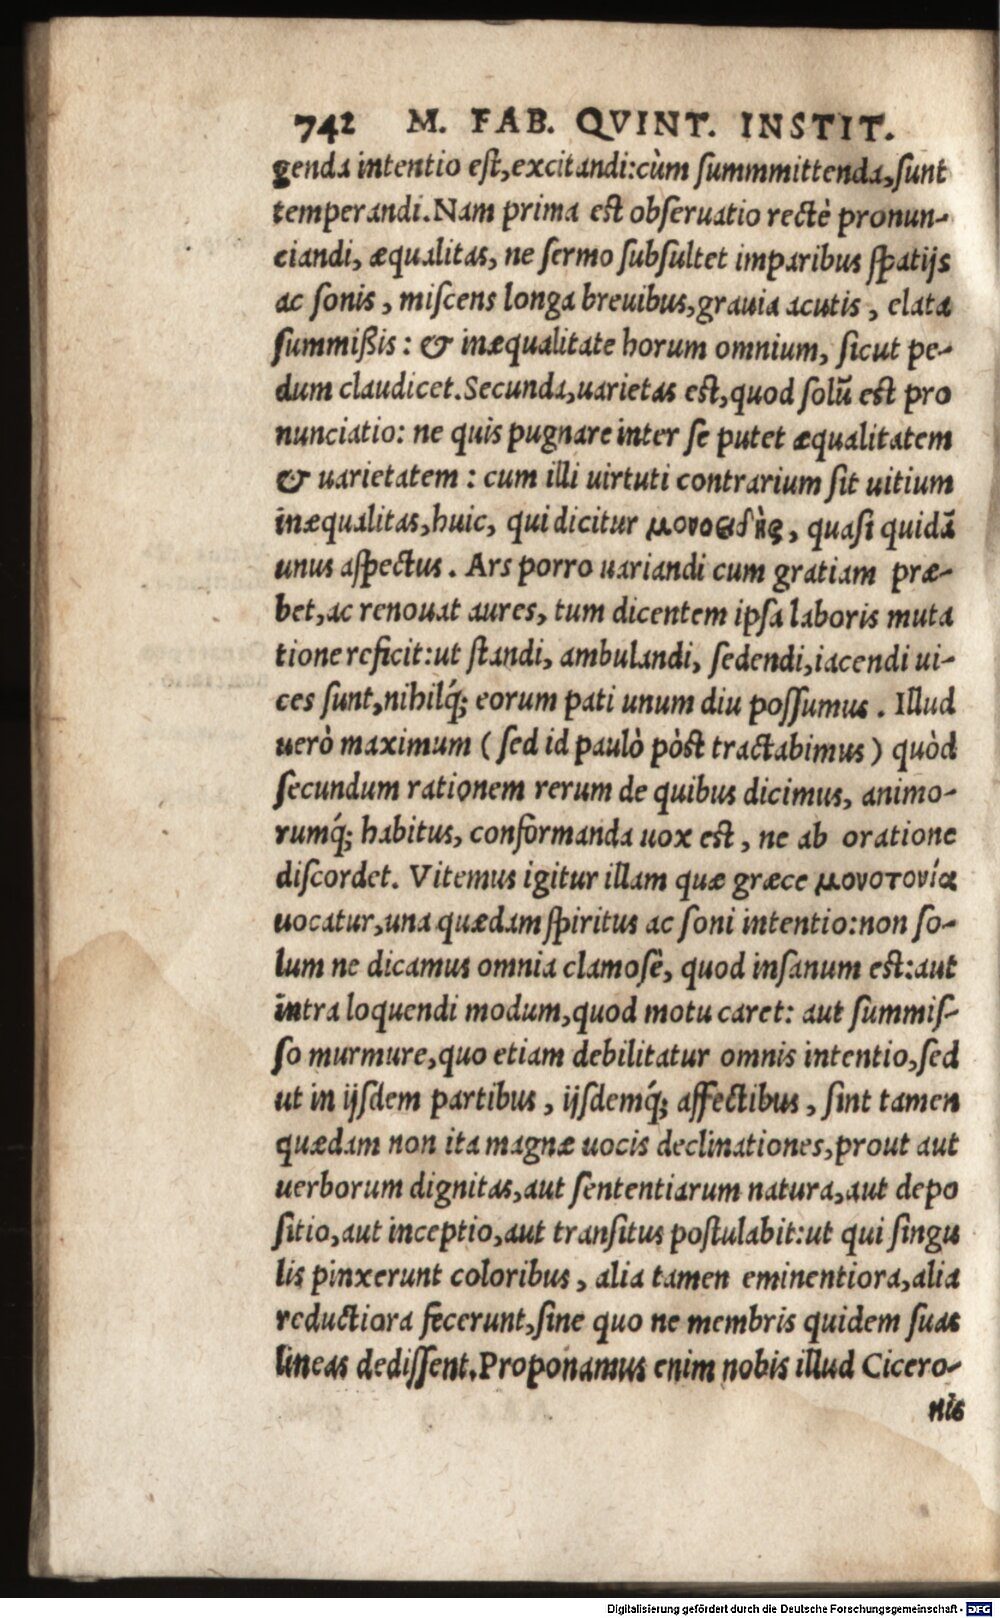 742 M. FAB. QVINT. INSTIT.
genda intentio eſt,excitandi:cùm ſummmittenda,ſunt
temperandi.Nam prima est obſeruatio rectè pronun-
ciandi, æqualitas, ne ſermo ſubſultet imparibus ſpatijs
ac ſonis, miſcens longa breuibus,grauia acutis, elata
ſummißis: & inæqualitate horum omnium, ſicut pe-
dum claudicet.Secunda,uarietas est,quod ſolũ est pro
nunciatio: ne quis pugnare inter ſe putet æqualitatem
& uarietatem: cum illi uirtuti contrarium ſit uitium
inæqualitas,huic, qui dicitur μονοειδὴς, quaſi quidã
unus aſpectus. Ars porro uariandi cum gratiam præ-
bet,ac renouat aures, tum dicentem ipſa laboris muta
tione reficit:ut ſtandi, ambulandi, ſedendi,iacendi ui-
ces ſunt,nihilq́; eorum pati unum diu poſſumus. Illud
uerò maximum (ſed id paulò pòst tractabimus) quòd
ſecundum rationem rerum de quibus dicimus, animo-
rumq́; habitus, conformanda uox est, ne ab oratione
diſcordet. Vitemus igitur illam quæ græce μονοτονία
uocatur,una quædam ſpiritus ac ſoni intentio:non ſo-
lum ne dicamus omnia clamoſè, quod inſanum est:aut
intra loquendi modum,quod motu caret: aut ſummiſ-
ſo murmure,quo etiam debilitatur omnis intentio,ſed
ut in ijſdem partibus, ijſdemq́; affectibus, ſint tamen
quædam non ita magnæ uocis declinationes,prout aut
uerborum dignitas,aut ſententiarum natura,aut depo
ſitio,aut inceptio,aut tranſitus poſtulabit:ut qui ſingu
lis pinxerunt coloribus, alia tamen eminentiora,alia
reductiora fecerunt,ſine quo ne membris quidem ſuas
lineas dediſſent.Proponamus enim nobis illud Cicero-
nis
Digitalisierung gefördert durch die Deutsche Forschungsgemeinschaft - DFG